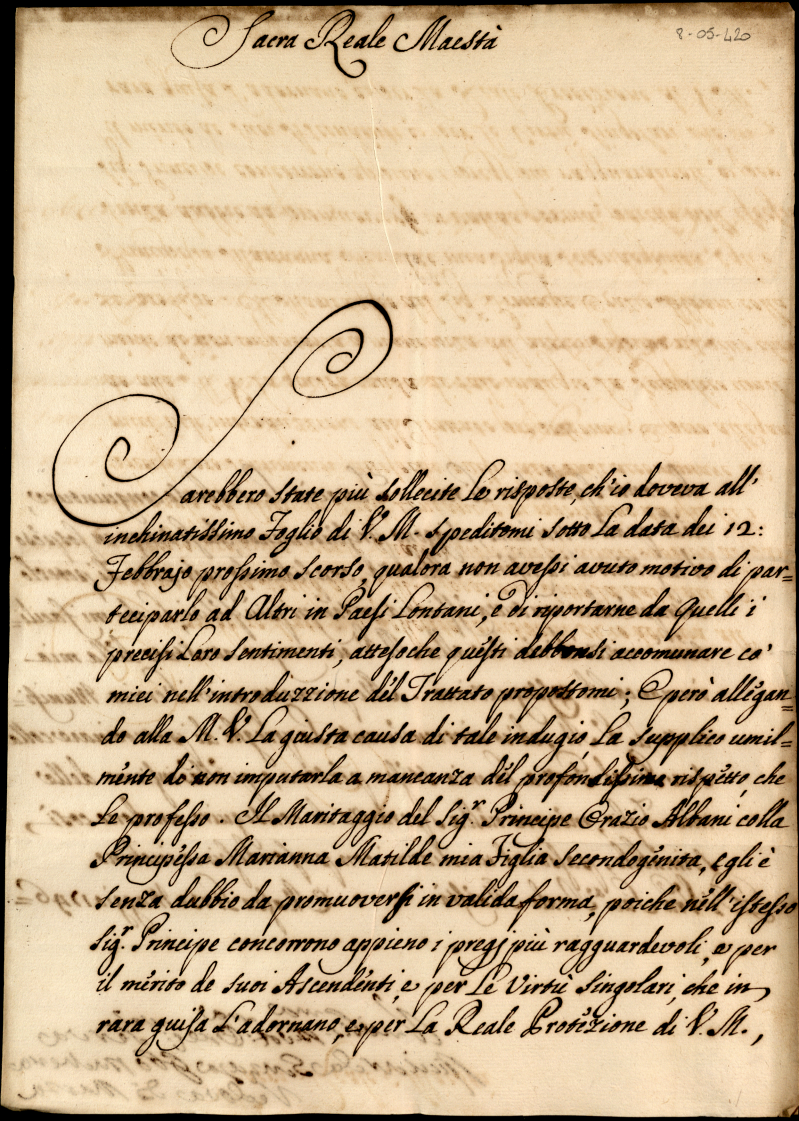 Sacra Reale Maestà
8-05-420
Sarebbero state più sollecite le risposte, ch'io doveva all'
inchinatissimo Foglio di V. M. speditomi sotto la data dei 12:
Febbrajo prossimo scorso, qualora non avessi avuto motivo di par=
teciparlo ad Altri in Paesi Lontani, e di riportarne da quelli i
precisi Loro Sentimenti, attesoche questi debbonsi accomunare co'
miei nell'introduzzione del Trattato propostomi; E però allegan=
do alla M. V. La giusta causa di tale indugio La supplico umil=
mente di non imputarla a mancanza del profondissimo rispetto, che
Le professo. Il Maritaggio del Sig.r Principe Orazio Albani colla
Principessa Marianna Matilde mia Figlia secondogenita, egli è
senza dubbio da promuoversi in valida forma, poiche nell'istesso
Sig.r Principe concorrono appieno i pregj più ragguardevoli, e per
il merito de suoi Ascendenti, e per Le Virtù Singolari, che in
rara guisa L'adornano, e per La Reale Protezione di V. M.,